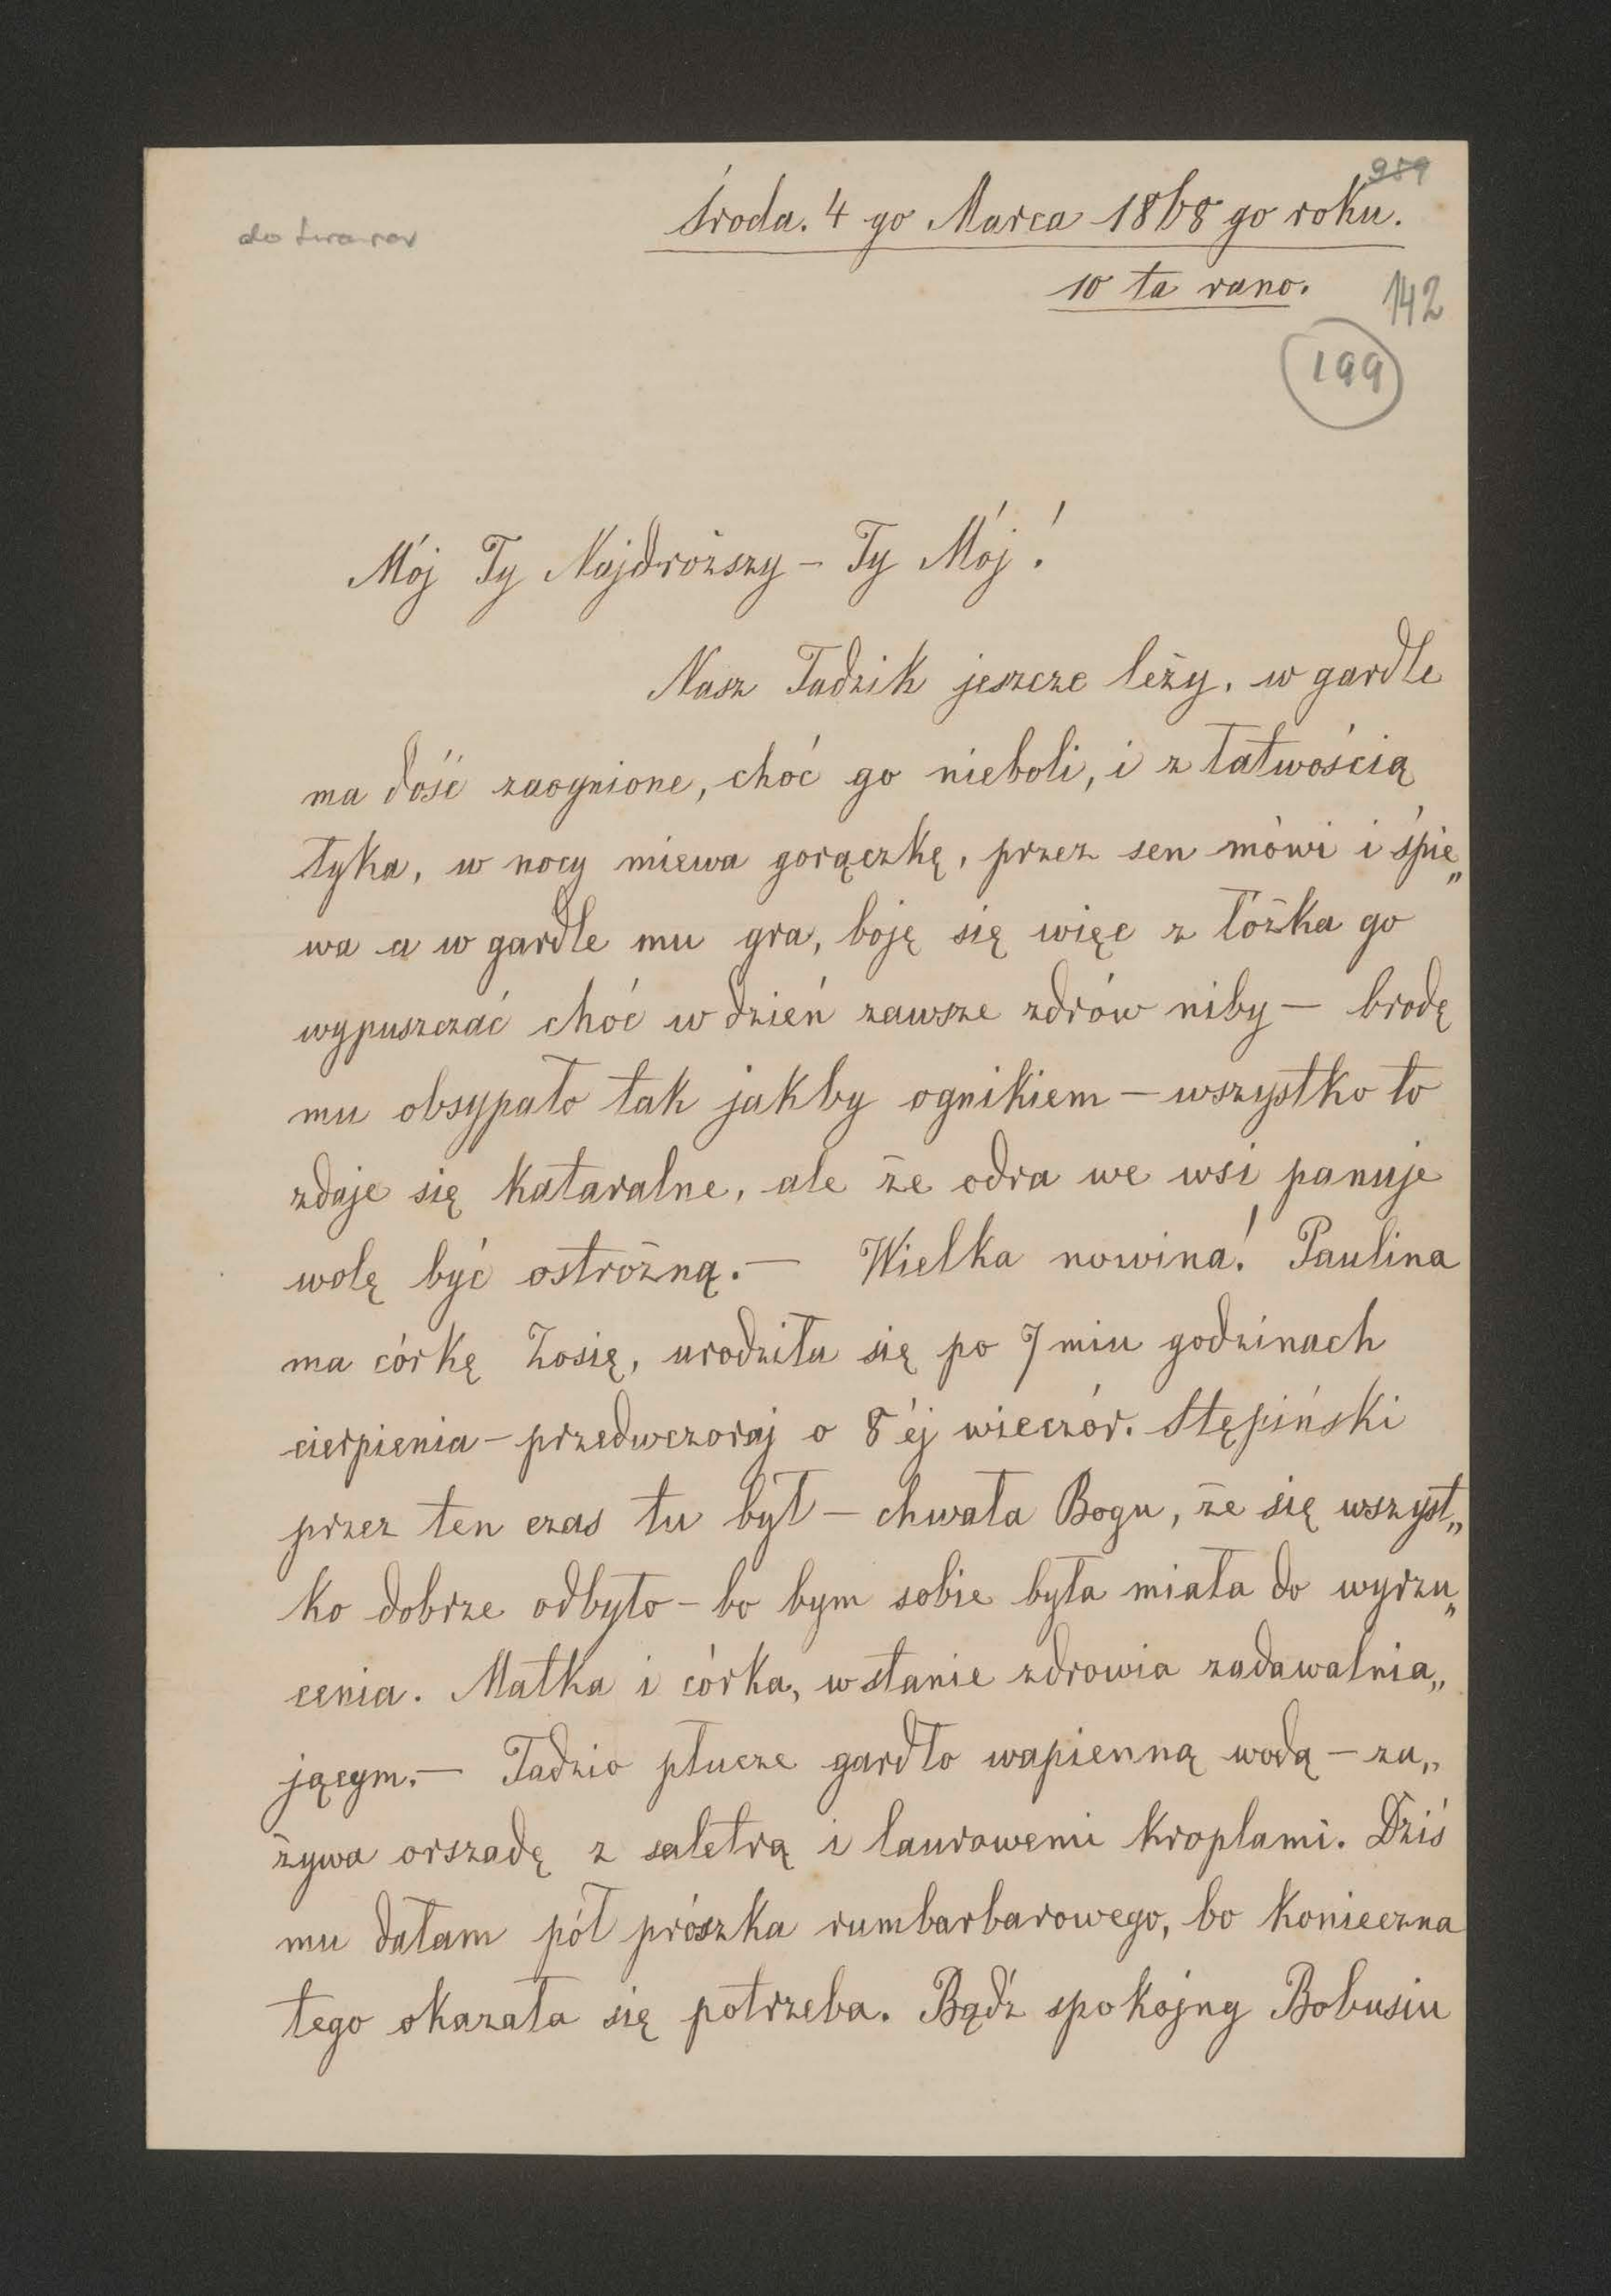 989
Środa. 4 go Marca 1868 go roku.
10 ta rano.
142
199
Mój Ty Najdroższy – Ty Mój!
Nasz Tadzik jeszcze leży, w gardle
ma dość zaognione, choć go nieboli, i z łatwością
łyka, w nocy miewa gorączkę, przez sen mówi i śpie„
wa a w gardle mu gra, boję się więc z łóżka go
wypuszczać choć w dzień zawsze zdrów niby – brodę
mu obsypało tak jakby ognikiem – wszystko to
zdaje się kataralne, ale że odra we wsi panuje
wolę być ostrożną. – Wielka nowina! Paulina
ma córkę Zosię, urodziła się po 7miu godzinach
cierpienia – przedwczoraj o 8éj wieczór. Stępiński
przez ten czas tu był – chwała Bogu, że się wszyst„
ko dobrze odbyło – bo bym sobie była miała do wyrzu„
cenia. Matka i córka, w stanie zdrowia zadawalnia„
jącym. – Tadzio płucze gardło wapienną wodą – za„
żywa orszadę z saletrą i laurowemi kroplami. Dziś
mu dałam pół prószka rumbarbarowego, bo konieczna
tego okazała się potrzeba. Bądź spokojny Bobusiu